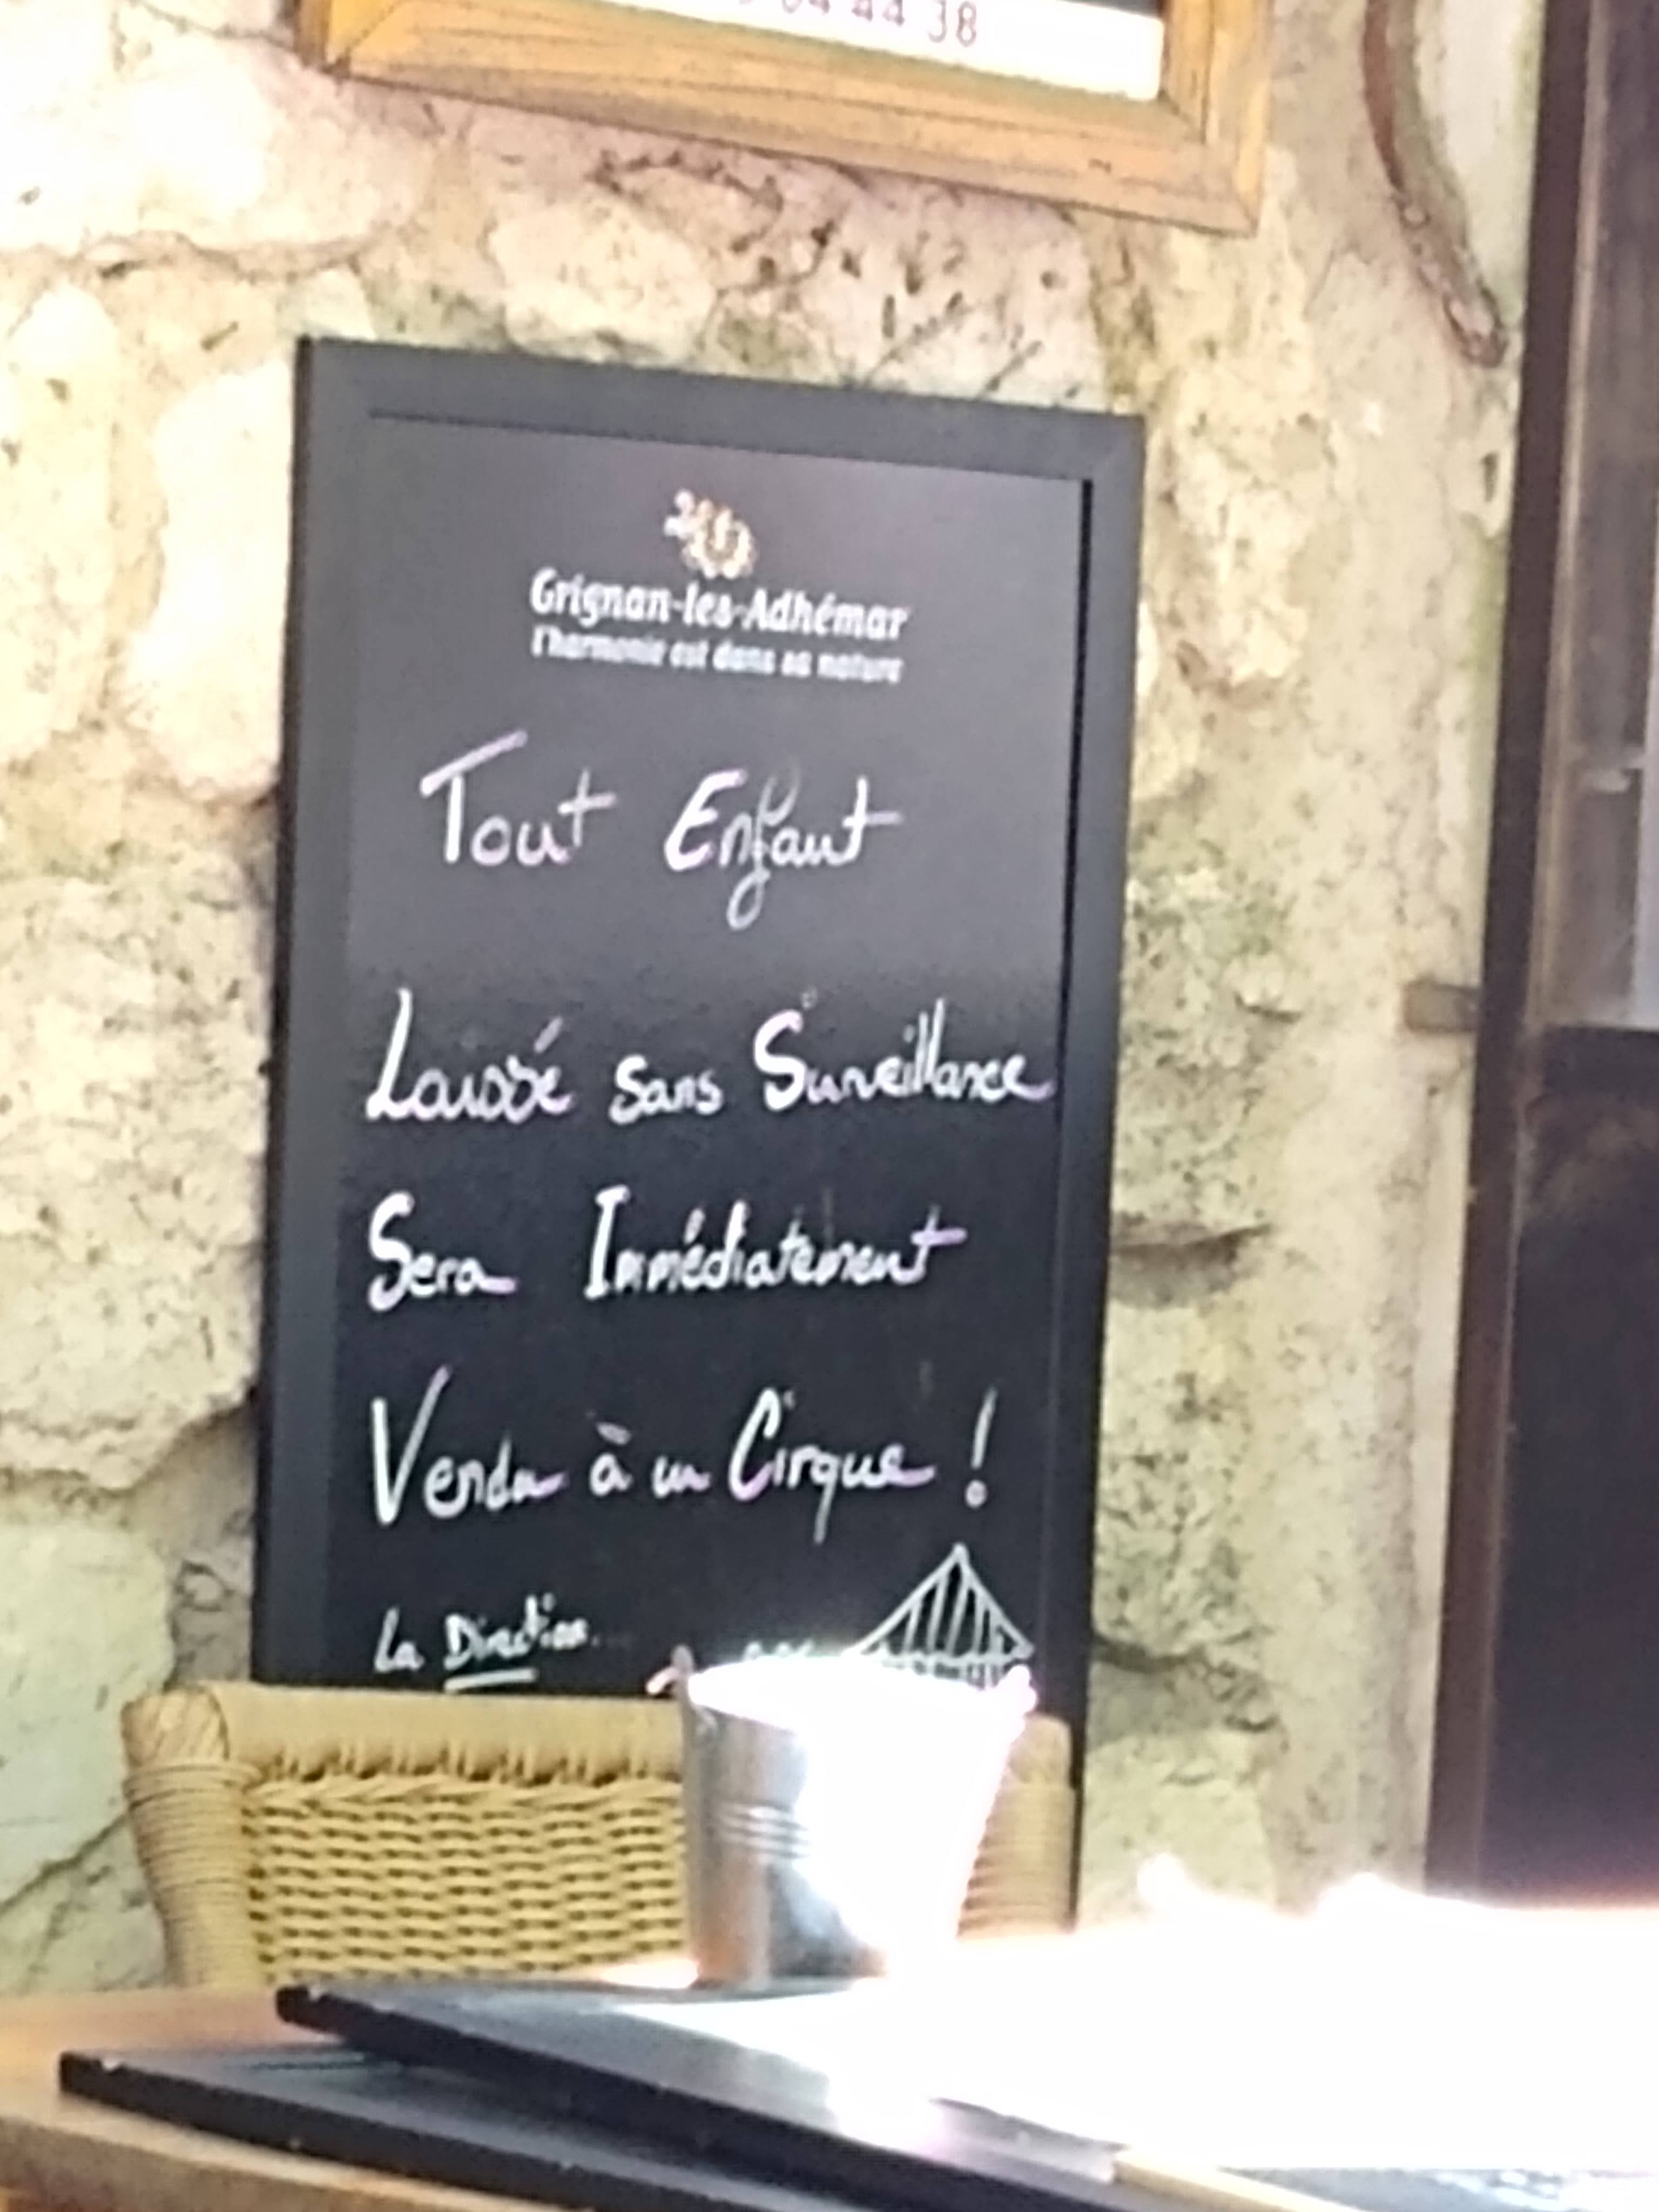 44 38
Grignan-les-Adhémar
l'harmonie est dans sa nature
Tout Enfant
Laissé sans Surveillance
Sera Immédiatement
Vendu à un Cirque !
La Direction...